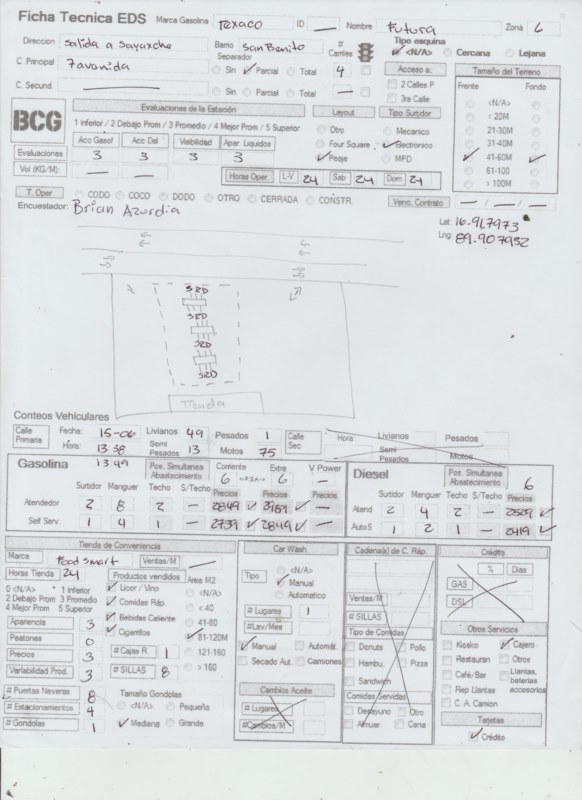 Ficha Tecnica EDS Marca Gasolina Texaco ID — Nombre Futura Zona 6
Direccion Salida a Sayaxche Barrio San Benito # Carriles Tipo esquina
<N/A> Cercana Lejana
Separador
Sin Parcial Total 4
C. Principal 7 avenida
Acceso a: Tamaño del Terreno
2 Calles P Frente Fondo
C. Secund. — Sin Parcial Total —
3ra Calle
<N/A>
< 20M
21-30M
31-40M
41-60M
61-100
> 100M
BCG Evaluaciones de la Estación Layout Tipo Surtidor
1 Inferior / 2 Debajo Prom / 3 Promedio / 4 Mejor Prom / 5 Superior
Otro Mecanico
Acc Gasol Acc Dsl Visibilidad Apar. Liquidos Four Square Electronico
Evaluaciones 3 3 3 3 Peaje MPD
Vol (KG/M): — — Horas Oper L-V 24 Sab 24 Dom 24
T. Oper CODO COCO DODO OTRO CERRADA CONSTR. Venc. Contrato — / — / —
Encuestador: Brian Azurdia
Lat 16.917973
Lng 89.907952
3RD
3RD
3RD
3RD
Tienda
Conteos Vehiculares
Calle Primaria Fecha: 15-06 Livianos 49 Pesados 1 Calle Sec Hora Livianos Pesados
Hora: 13:38 Semi Pesados 13 Motos 75 Semi Pesados Motos
13:49
Gasolina Pos. Simultanea Abastecimiento Corriente 6 Extra 6 V. Power —
Diesel Pos. Simultanea Abastecimiento 6
Surtidor Manguer Techo S/Techo Precios Precios Precios
Surtidor Manguer Techo S/Techo Precios
Atendedor 2 8 2 —
Atend 2 4 2 — 2529
Self Serv. 1 4 1 — 2739 2849 —
Auto S 1 2 1 — 2419
Tienda de Conveniencia
Marca Food Smart Ventas/M —
Horas Tienda 24 Productos vendidos Area M2
0 <N/A> 1 Inferior
2 Debajo Prom 3 Promedio
4 Mejor Prom 5 Superior
Licor / Vino
Comidas Ráp.
Bebidas Caliente
Cigarrillos
<N/A>
< 40
41-80
81-120M
121-160
> 160
Apariencia 3
Peatones 0
Precios 3
Variabilidad Prod. 3
# Cajas R. 1
# SILLAS 8
# Puertas Neveras 8
# Estacionamientos 4
# Gondolas 1
Tamaño Gondolas
<N/A> Pequeña
Mediana Grande
Car Wash
Tipo <N/A>
Manual
Automatico
# Lugares 1
# Lav/Mes
Manual Automát.
Secado Aut. Camiones
Cambios Aceite
# Lugares
# Cambios/M
Cadena(s) de C. Ráp.
Ventas/M
# SILLAS
Tipo de Comidas
Donuts Pollo
Hambu. Pizza
Sandwich
Comidas Servidas
Desayuno Otro
Almuer Cena
Crédito
% Dias
GAS
DSL
Otros Servicios
Kiosko Cajero
Restauran Otros
Café/Bar Llantas, baterias accesorios
Rep Llantas
C. A. Camion
Tarjetas
Crédito